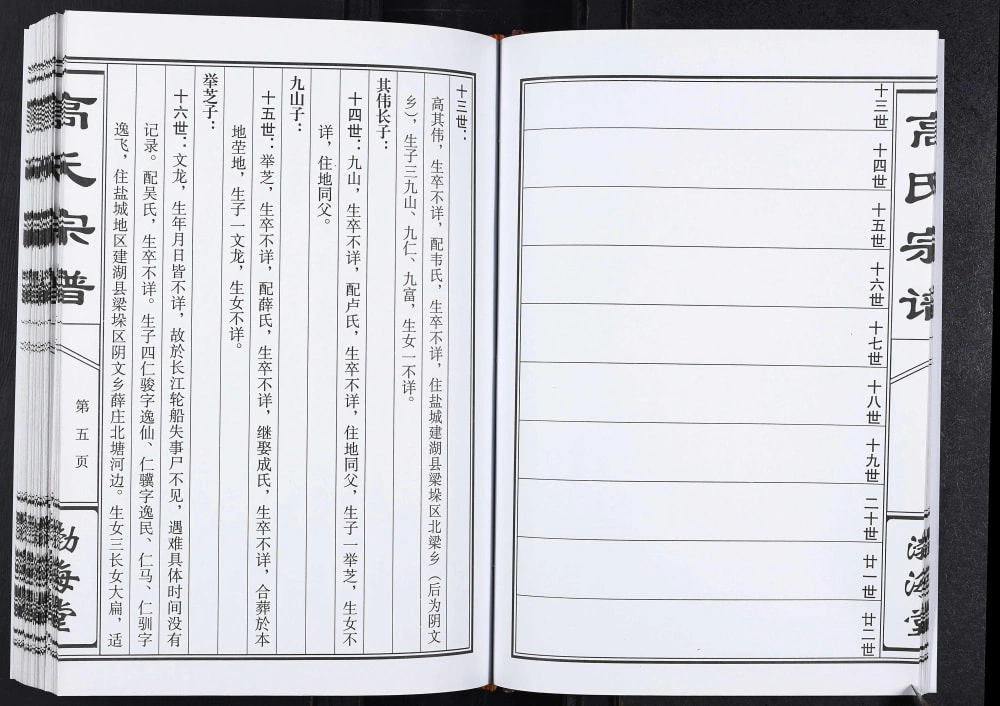 高氏宗谱
渤海堂
十三世
十四世
十五世
十六世
十七世
十八世
十九世
二十世
廿一世
廿二世
十三世：
高其伟，生卒不详，配韦氏，生卒不详，住盐城建湖县梁垛区北梁乡（后为阴文
乡），生子三九山、九仁、九富，生女一不详。
其伟长子：
十四世：九山，生卒不详，配卢氏，生卒不详，住地同父，生子一举芝，生女不
详，住地同父。
九山子：
十五世：举芝，生卒不详，配薛氏，生卒不详，继娶成氏，生卒不详，合葬於本
地茔地，生子一文龙，生女不详。
举芝子：
十六世：文龙，生年月日皆不详，故於长江轮船失事尸不见，遇难具体时间没有
记录。配吴氏，生卒不详。生子四仁骏字逸仙、仁骥字逸民、仁马、仁驯字
逸飞，住盐城地区建湖县梁垛区阴文乡薛庄北塘河边。生女三长女大扁，适
高氏宗谱
第五页
渤海堂